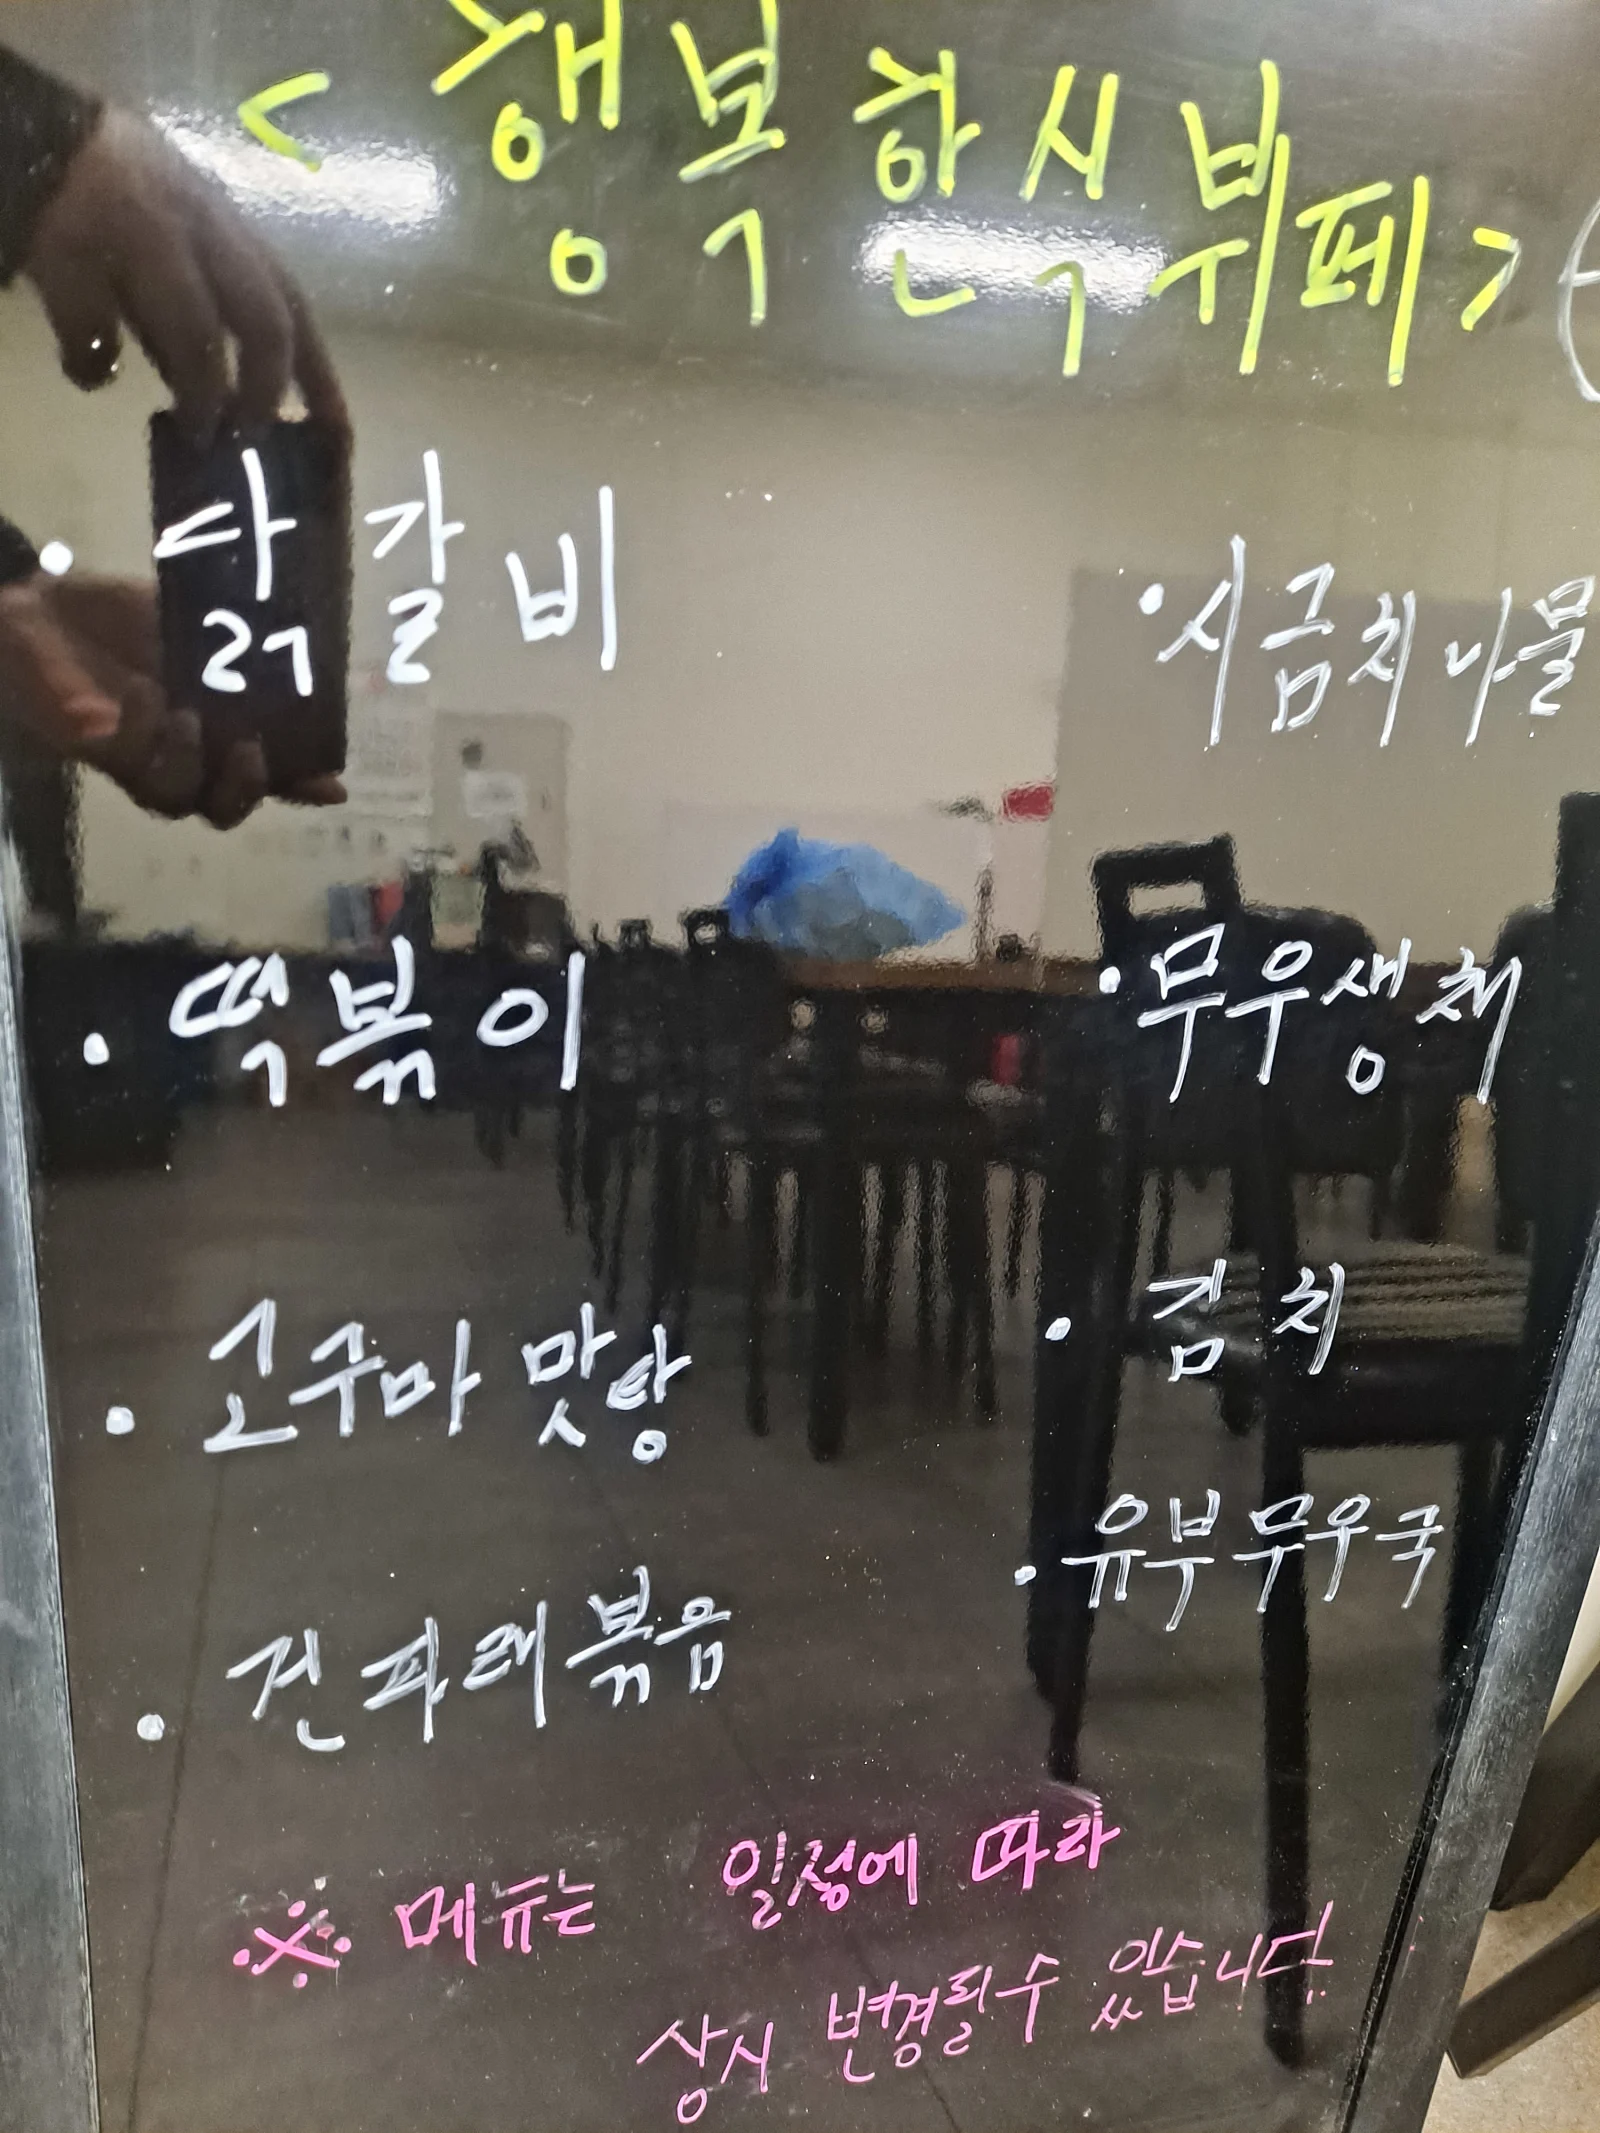 < 행복한식뷔페 >
· 닭갈비
· 시금치나물
· 떡볶이
· 무우생채
· 고구마 맛탕
· 김치
· 건파래볶음
· 유부무우국
※ 메뉴는 일정에 따라
상시 변경될수 있습니다.